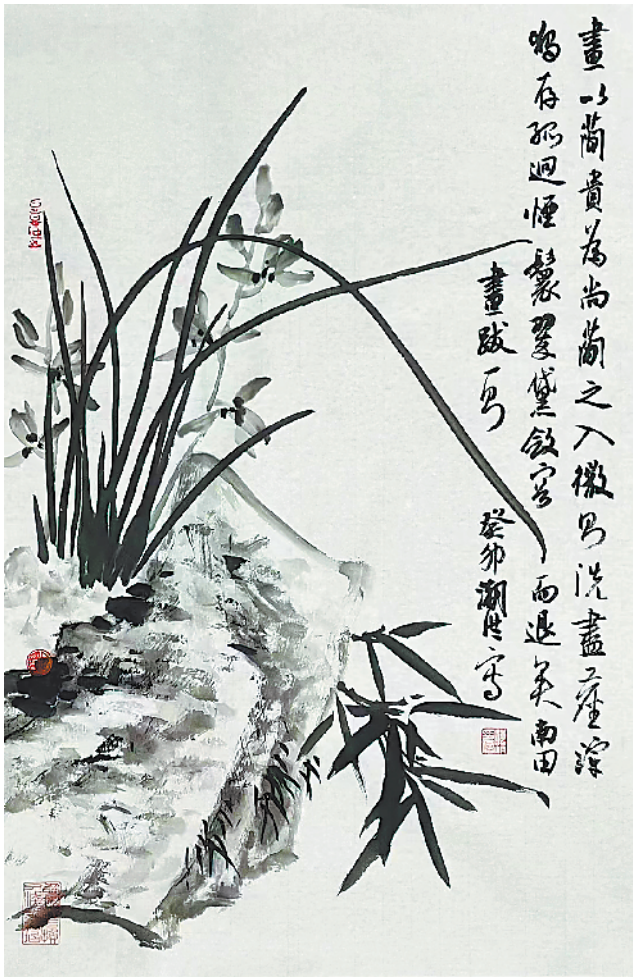 畫以簡貴為尚簡之入微則洗盡塵滓
獨存孤迥煙鬟翠黛斂容而退矣南田
畫跋一則 癸卯潮寫